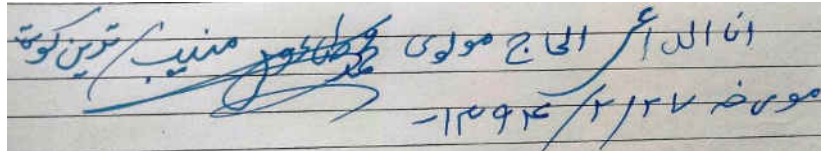 انا الداعی الحاج مولوی محمد طاهر منیب / ترین کوټ
مورخه ۱۳۹۴/۲/۲۷-